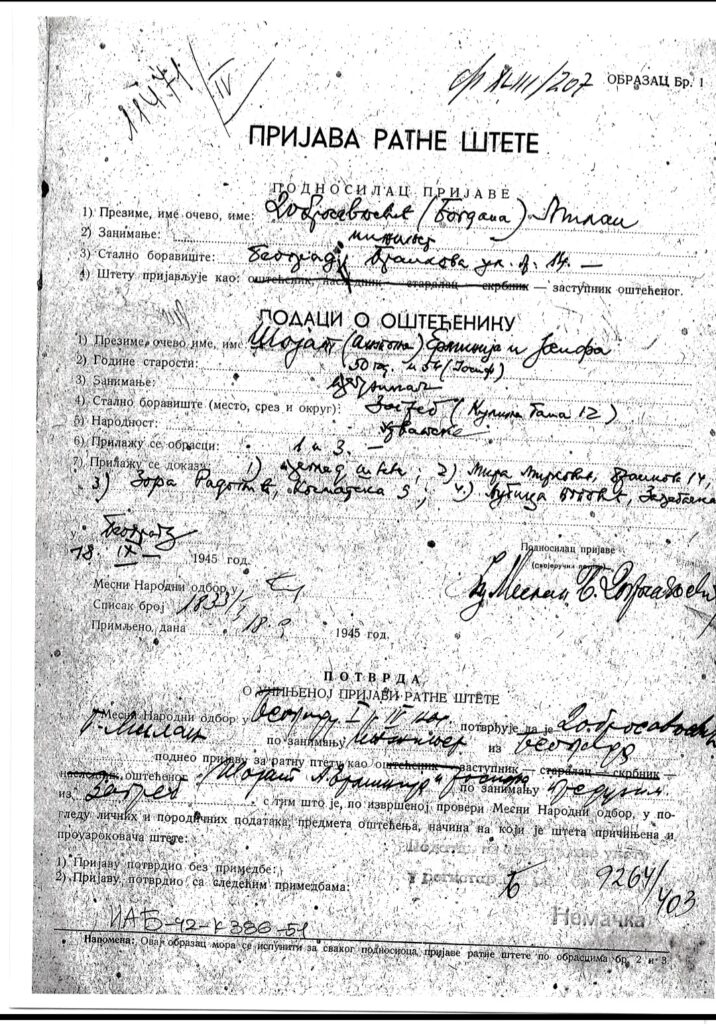 11471/IV
ОБРАЗАЦ Бр. 1
ПРИЈАВА РАТНЕ ШТЕТЕ
ПОДНОСИЛАЦ ПРИЈАВЕ
1) Презиме, име очево, име: Добросављевић (Богдана) Милан
2) Занимање: инжињер
3) Стално боравиште: Београд, Бранкова ул. бр.
4) Штету пријављује као: оштећеник, наследник — старалац — скрбник — заступник оштећеног.
ПОДАЦИ О ОШТЕЋЕНИКУ
1) Презиме, очево име, име: Шојат (Антона) и Јосифа
2) Године старости: 50 год. и 54 (Јосиф)
3) Занимање:
4) Стално боравиште (место, срез и округ): Загреб ( 12)
5) Народност: хрватске
6) Прилажу се обрасци: 1 и 3. —
7) Прилажу се докази: 1) ; 2) Мира Мирковић, Бранкова 14,
3) Зора , Космајска 5; 4)
у Београду
18. IX — 1945 год.
Подносилац пријаве
(својеручни потпис)
Инж Милан Б. Добросављевић
Месни Народни одбор у
Списак број 1833/
Примљено, дана 18.9 1945 год.
ПОТВРДА
О УЧИЊЕНОЈ ПРИЈАВИ РАТНЕ ШТЕТЕ
Месни Народни одбор у Београду I IV потврђује да је Добросављевић
Милан по занимању инжињер из Београда
поднео пријаву за ратну штету као оштећеник — заступник — старалац — скрбник —
наследник оштећеног Шојат и Јосифа по занимању
из Загреб, с тим што је, по извршеној провери Месни Народни одбор, у по-
гледу личних и породичних података, предмета оштећења, начина на који је штета причињена и
проузроковача штете:
1) Пријаву потврдио без примедбе:
2) Пријаву, потврдио са следећим примедбама:
9264/403
Немачка
ИАБ-42-К386-51
Напомена: Овај образац мора се испунити за сваког подносиоца, пријаве ратне штете по обрасцима бр. 2 и 3.